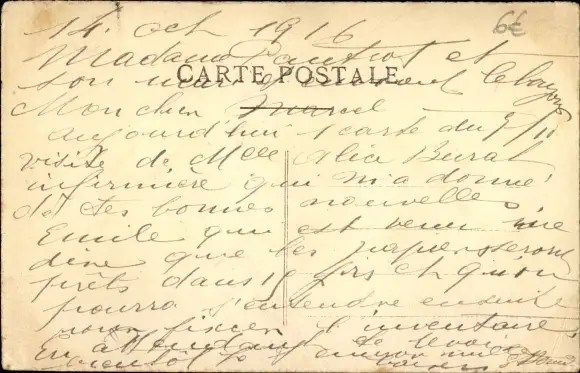 14 Oct 1916
6€
Madame et
son mari
CARTE POSTALE
Mon cher Marcel
aujourd'hui 1 carte du 9/11
visite de Melle Alice Burat
infirmière qui m'a donné
de tes bonnes nouvelles.
Emile qui est venu me
dire que les papiers seront
prêts dans 15 jrs et qu'on
pourra s'entendre ensuite
pour fixer l'inventaire.
En attendant de te voir
bientôt